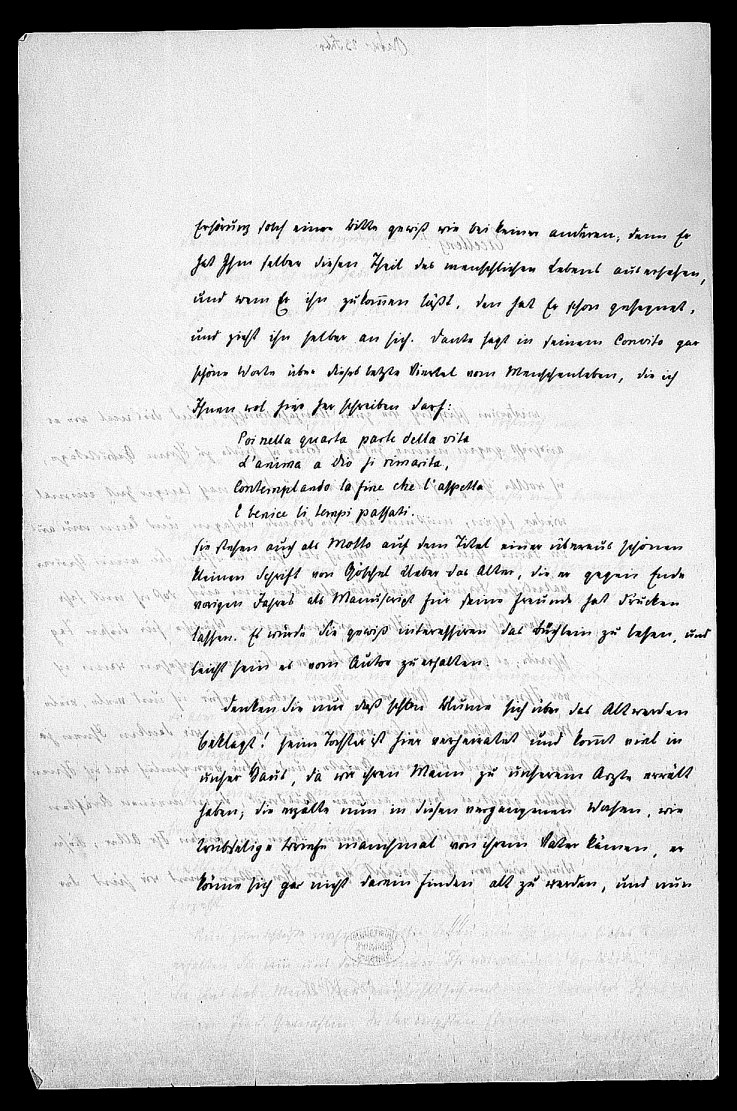 Erhörung solch einer Bitte gewiß wie bei keiner anderen; denn Er
hat Ihm selber diesen Theil des menschlichen Lebens ausersehen,
und wem Er ihn zukommen läßt, den hat Er schon gesegnet,
und zieht ihn selber an sich. Dante sagt in seinem Convito gar
schöne Worte über dieses letzte Viertel vom Menschenleben, die ich
Ihnen wol hier her schreiben darf:
Poi nella quarta parte della vita
L'anima a Dio si rimarita,
Contemplando la fine che l'aspetta
E benice li tempi passati.
Sie stehen auch als Motto auf dem Titel einer überaus schönen
kleinen Schrift von Göschel Ueber das Alter, die er gegen Ende
vorigen Jahres als Manuscript für seine Freunde hat drucken
lassen. Es würde Sie gewiß interessiren das Büchlein zu lesen, und
leicht sein es vom Autor zu erhalten.
Denken Sie nur daß sich über das Altwerden
beklagt! Seine Tochter ist hier verheiratet und kommt viel in
unser Haus, da wir ihren Mann zu unserem Arzte erwält
haben; die erzälte nun in diesen vergangenen Wochen, wie
trübselige Briefe manchmal von ihrem Vater kämen, er
könne sich gar nicht darein finden alt zu werden, und nun